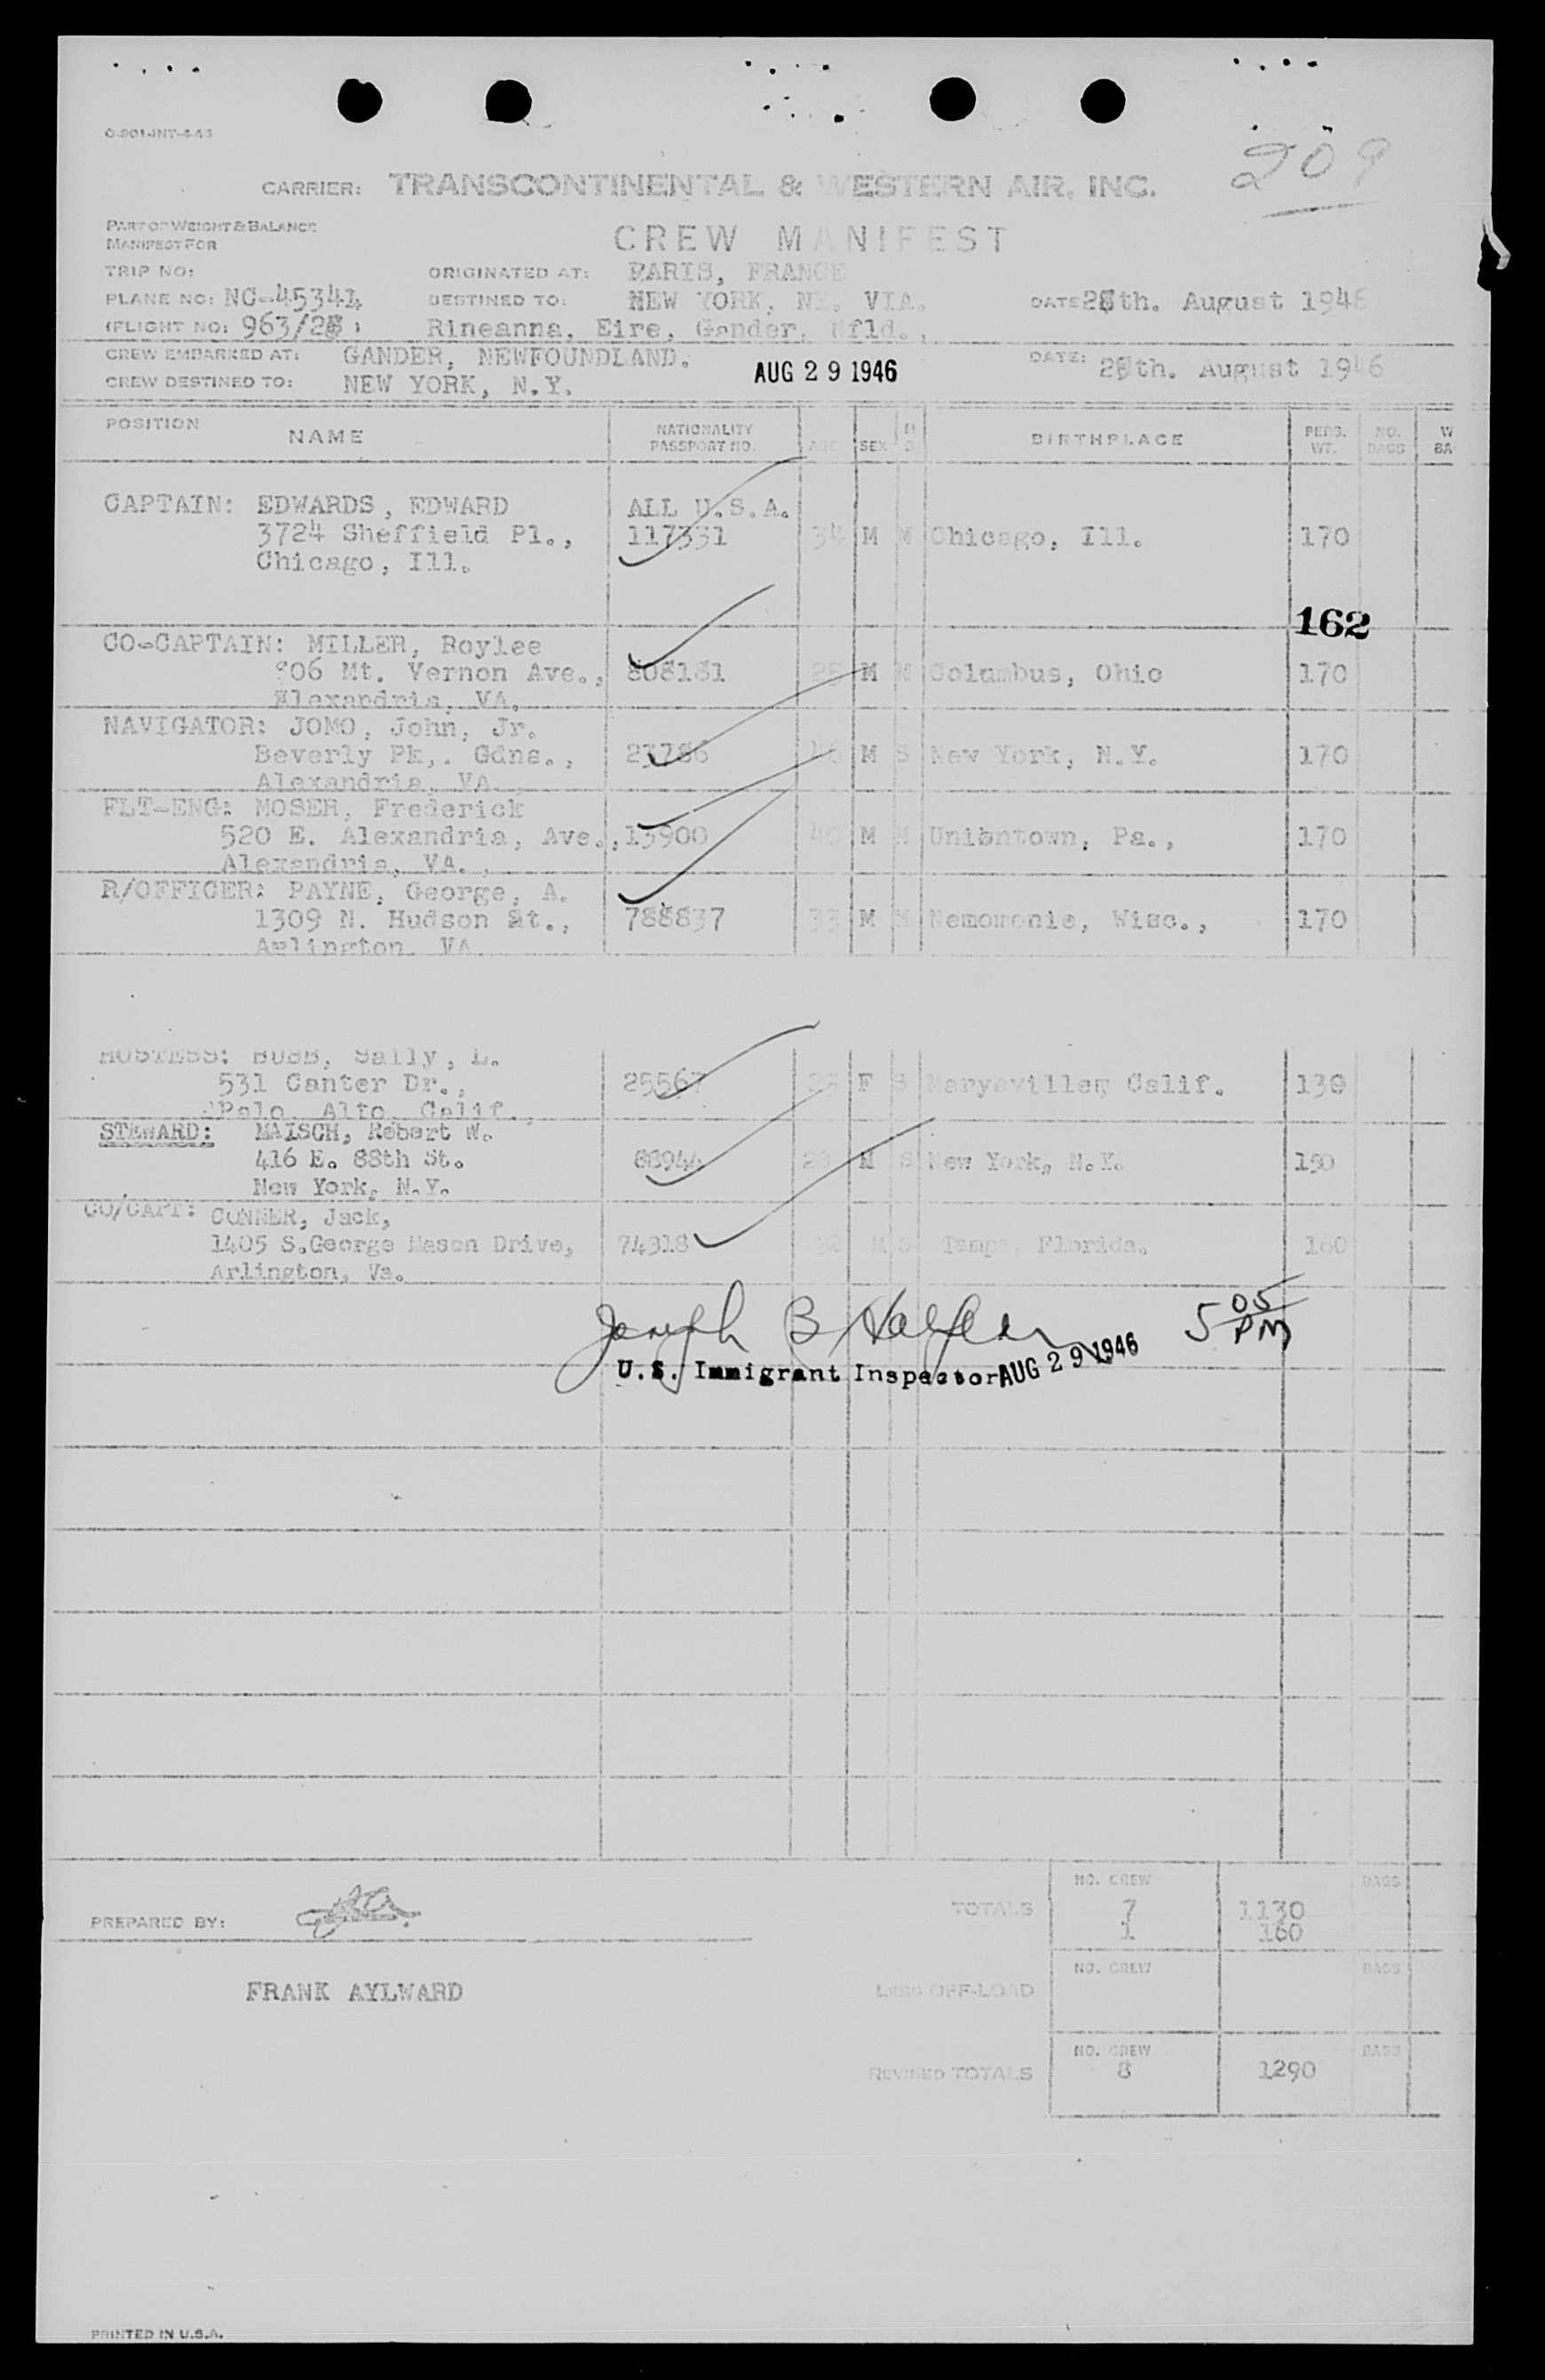 209
CARRIER: TRANSCONTINENTAL & WESTERN AIR, INC.
PART OF WEIGHT & BALANCE
MANIFEST FOR
CREW MANIFEST
TRIP NO: ORIGINATED AT: PARIS, FRANCE
PLANE NO: NC-45341 DESTINED TO: NEW YORK, NY. VIA. DATE 28th. August 1946
(FLIGHT NO: 963/28 ) Rineanna, Eire, Gander, Nfld.,
CREW EMBARKED AT: GANDER, NEWFOUNDLAND. AUG 29 1946 DATE: 28th. August 1946
CREW DESTINED TO: NEW YORK, N.Y.
POSITION NAME NATIONALITY PASSPORT NO. AGE SEX M S BIRTHPLACE PERS. WT. NO. BAGS W BA
CAPTAIN: EDWARDS, EDWARD ALL U.S.A.
3724 Sheffield Pl., 117331 34 M M Chicago, Ill. 170
Chicago, Ill.
162
CO-CAPTAIN: MILLER, Roylee
906 Mt. Vernon Ave., 808181 M M Columbus, Ohio 170
Alexandria, VA.
NAVIGATOR: JOMO, John, Jr.
Beverly Pk,. Gdns., 23786 M S New York, N.Y. 170
Alexandria, VA.,
FLT-ENG: MOSER, Frederick
520 E. Alexandria, Ave., 13900 40 M M Uniontown, Pa., 170
Alexandria, VA.,
R/OFFICER: PAYNE, George, A.
1309 N. Hudson St., 788837 33 M M Nemomonie, Wisc., 170
Arlington, VA
HOSTESS: BUBB, Sally, L.
531 Ganter Dr., 25567 F S Marysville, Calif. 130
Palo, Alto, Calif.,
STEWARD: MAISCH, Robert W.
416 E. 88th St. 88944 M S New York, N.Y. 150
New York, N.Y.
CO/CAPT: CONNER, Jack,
1405 S.George Mason Drive, 74318 M S Tampa, Florida. 160
Arlington, Va.
Joseph B 5 05 PM
U.S. Immigrant Inspector AUG 29 1946
NO. CREW BAGS
TOTALS 7 1130
1 160
PREPARED BY:
NO. CREW BAGS
FRANK AYLWARD LESS OFF-LOAD
NO. CREW BAGS
REVISED TOTALS 8 1290
PRINTED IN U.S.A.